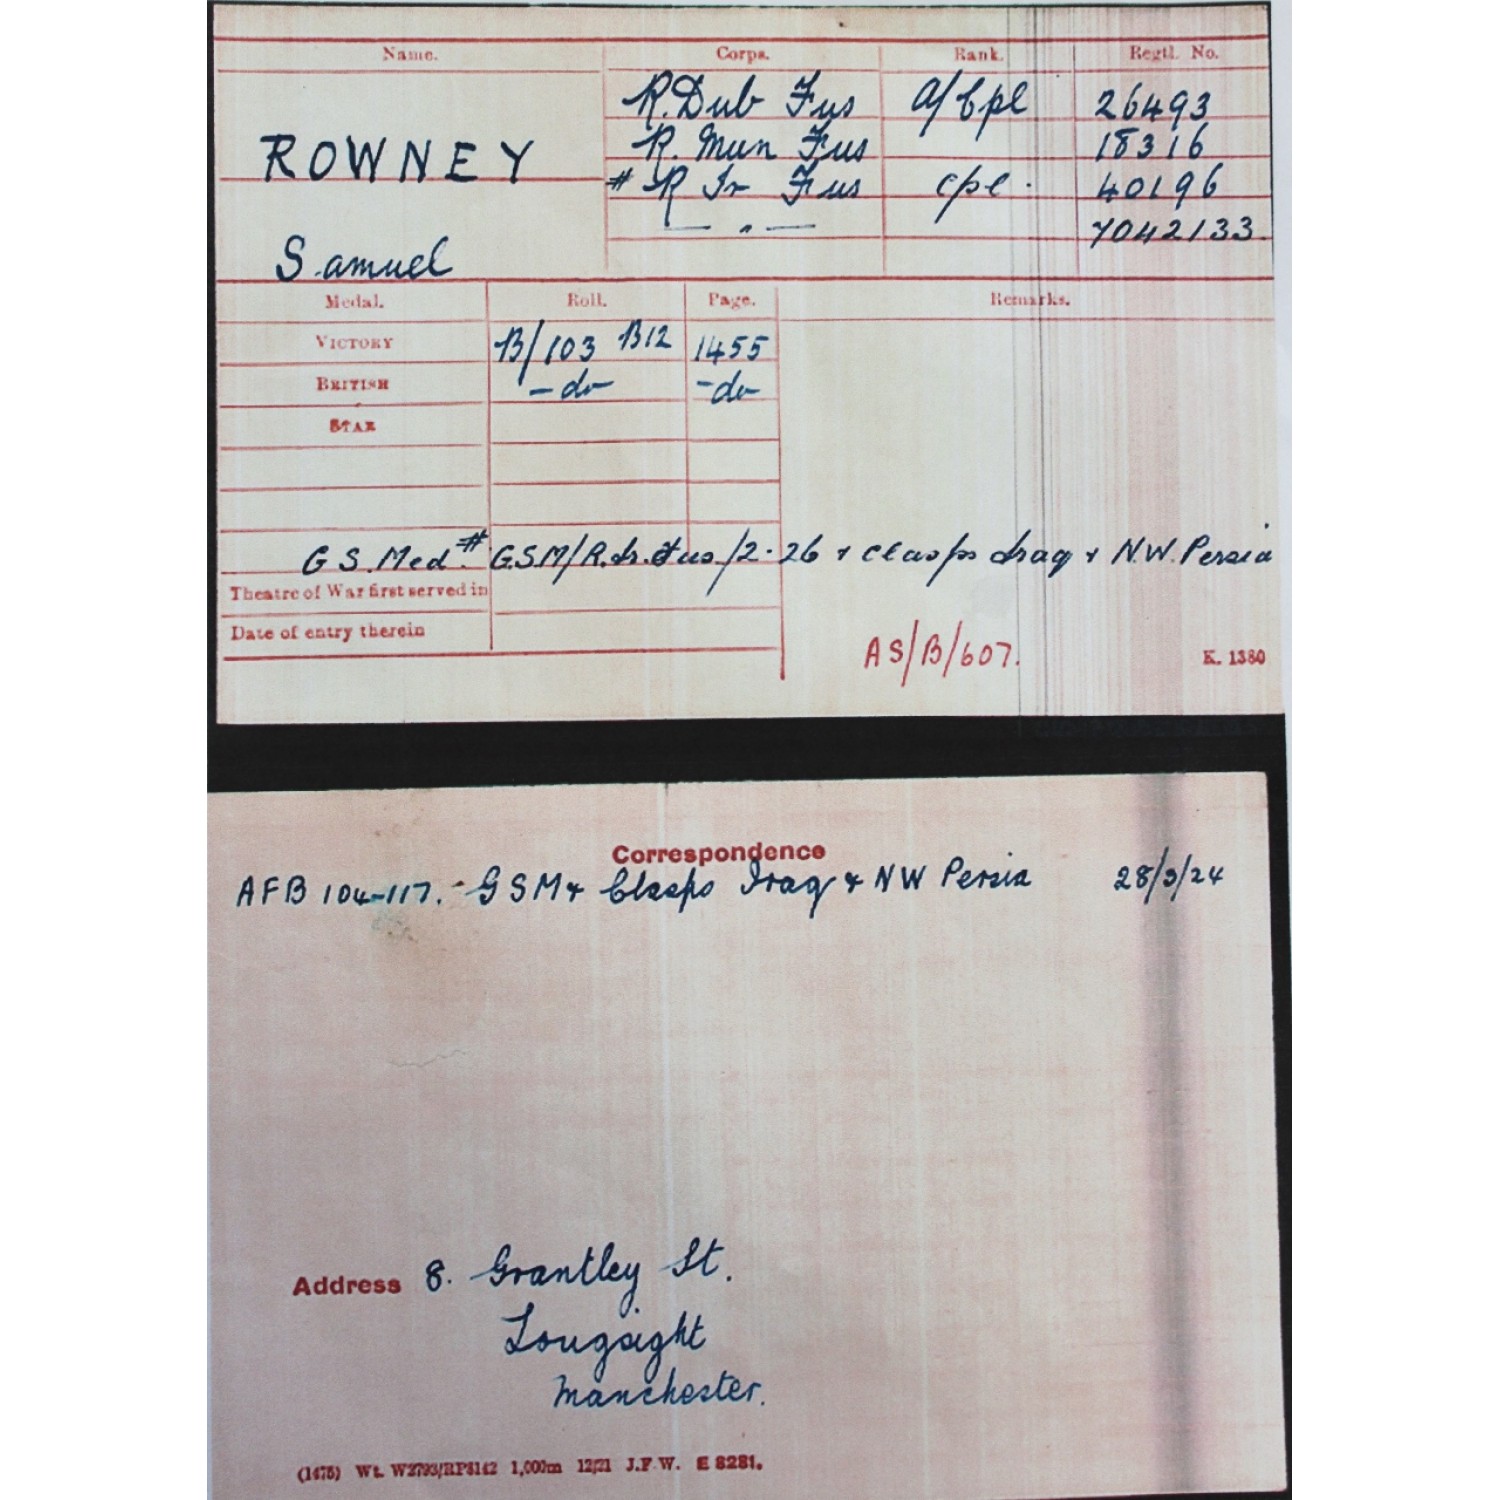 Name. Corps. Rank. Regtl. No.
R. Dub Fus A/Cpl 26493
ROWNEY R. Mun Fus 18316
# R Ir Fus Cpl. 40196
— " — 7042133.
Samuel
Medal. Roll. Page. Remarks.
VICTORY B/103 B12 1455
BRITISH -do- -do-
STAR
G.S. Med. # G.S.M/R.Ir.Fus./2.26 + clasps Iraq + N.W. Persia
Theatre of War first served in
Date of entry therein
AS/B/607. K. 1380
Correspondence
AFB 104-117. - GSM + Clasps Iraq + NW Persia 28/3/24
Address 8. Grantley St.
Longsight
Manchester.
(1475) Wt. W2793/RP8142 1,000m 12/21 J.F.W. E 8281.